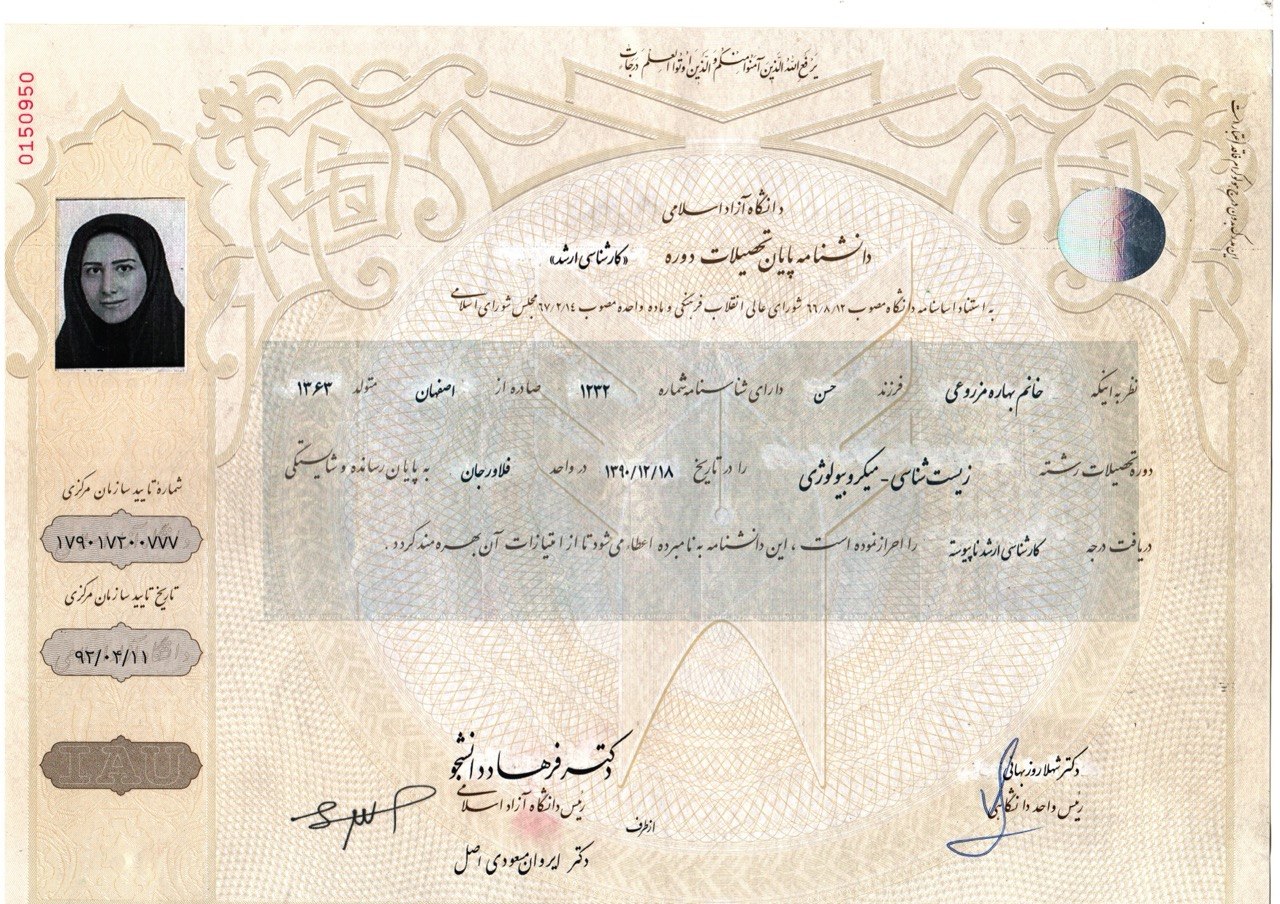 یرفع الله الذین آمنوا منکم والذین اوتوا العلم درجات
0150950
این مدرک بدون درج هولوگرام فاقد اعتبار است
دانشگاه آزاد اسلامی
دانشنامه پایان تحصیلات دوره «کارشناسی ارشد»
به استناد اساسنامه دانشگاه مصوب ۶۶/۸/۱۲ شورای عالی انقلاب فرهنگی و ماده واحده مصوب ۶۷/۲/۱۴ مجلس شورای اسلامی
نظر به اینکه خانم بهاره مزروعی فرزند حسن دارای شناسنامه شماره ۱۲۳۲ صادره از اصفهان متولد ۱۳۶۳
دوره تحصیلات رشته زیست شناسی - میکروبیولوژی را در تاریخ ۱۳۹۰/۱۲/۱۸ در واحد فلاورجان به پایان رسانده و شایستگی
دریافت درجه کارشناسی ارشد ناپیوسته را احراز نموده است ، این دانشنامه به نامبرده اعطاء می‌شود تا از امتیازات آن بهره مند گردد .
شمارهٔ تایید سازمان مرکزی
۱۷۹۰۱۷۲۰۰۷۷۷
تاریخ تایید سازمان مرکزی
۹۲/۰۴/۱۱
IAU
دکتر شهلا روزبهانی
رئیس واحد دانشگاهی
دکتر فرهاد دانشجو
رئیس دانشگاه آزاد اسلامی
از طرف
دکتر ایروان مسعودی اصل